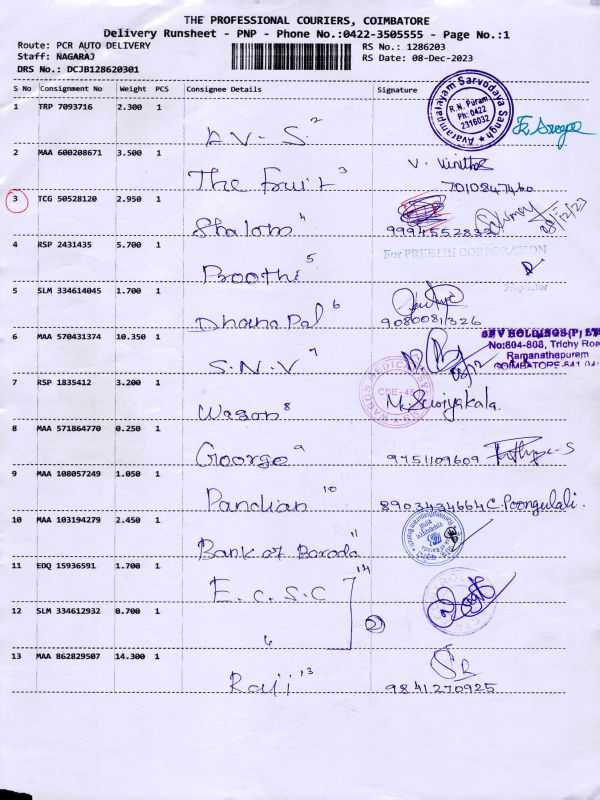 THE PROFESSIONAL COURIERS, COIMBATORE
Delivery Runsheet - PNP - Phone No.:0422-3505555 - Page No.:1
Route: PCR AUTO DELIVERY
RS No.: 1286203
Staff: NAGARAJ
RS Date: 08-Dec-2023
DRS No.: DCJB128620301
S No Consignment No Weight PCS Consignee Details Signature
1 TRP 7093716 2.300 1
A.V.S. 2
Avarampalayam Sarvodaya Sangh
R.N. Puram
Ph: 0422
2316032
2 MAA 600208671 3.500 1
The Fruit 3
V.
7010847460
3 TCG 50528120 2.950 1
Shalom 4
9994552832
4 RSP 2431435 5.700 1
Preethi 5
For PREETHI CORPORATION
Proprietor
5 SLM 334614045 1.700 1
Dhana Pal 6
9080081326
6 MAA 570431374 10.350 1
S.N.V 7
SNV HOLDINGS(P) LTD
No:804-808, Trichy Road
Ramanathapuram
COIMBATORE-641 04
7 RSP 1835412 3.200 1
Wagon 8
M. Suriyakala.
8 MAA 571864770 0.250 1
George 9
9751109609
9 MAA 108057249 1.050 1
Pandian 10
8903434664 C. Poongulali.
10 MAA 103194279 2.450 1
Bank of Baroda 11
11 EDQ 15936591 1.700 1
E.C.S.C
12 SLM 334612932 0.700 1
13 MAA 862829507 14.300 1
Raji 13
9841270925